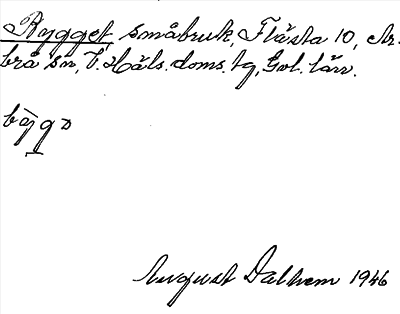 Rygget, småbruk, Flästa 10, Ar-
brå sn, V. Häls. doms. tg, Gvl. län.
August Dalhem 1946